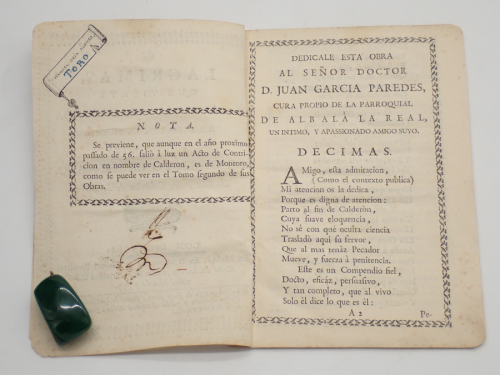 TORO
NOTA.
Se previene, que aunque en el año proximo
passado de 56. salió à luz un Acto de Contri-
cion en nombre de Calderon, es de Montoro,
como se puede ver en el Tomo segundo de sus
Obras.
DEDICALE ESTA OBRA
AL SEÑOR DOCTOR
D. JUAN GARCIA PAREDES,
CURA PROPIO DE LA PARROQUIAL
DE ALBALÀ LA REAL,
UN INTIMO, Y APASSIONADO AMIGO SUYO.
DECIMAS.
AMigo, esta admiracion,
(Como el contexto publica)
Mi atencion os la dedica,
Porque es digna de atencion:
Parto al fin de Calderòn,
Cuya suave eloquencia,
No sé con què oculta ciencia
Trasladò aqui su fervor,
Que al mas tenáz Pecador
Mueve, y fuerza à penitencia.
Este es un Compendio fiel,
Docto, eficáz, persuasivo,
Y tan completo, que al vivo
Solo él dice lo que es él:
A 2
Pe-